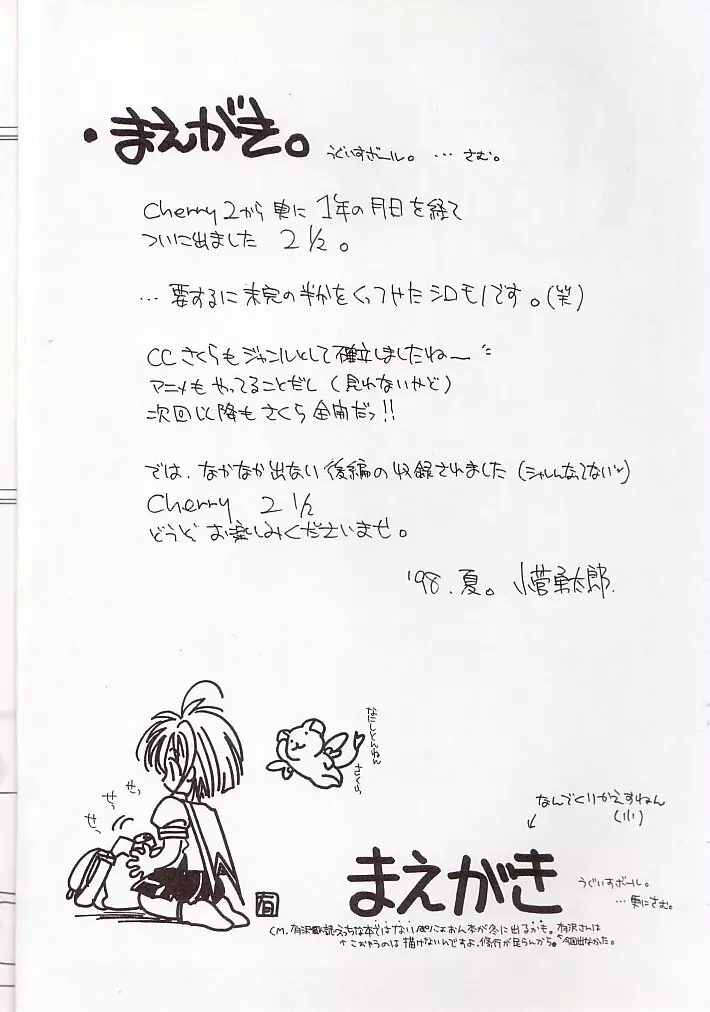 ・まえがき。 うぐいすボール。 … さむ。
Cherry 2から 更に 1年の月日を経て
ついに出ました 2 1/2。
… 要するに 未完の半分をくっつけた シロモノです。(笑)
CCさくらもジャンルとして確立しましたね〜
アニメもやってることだし (見れないけど)
次回以降もさくら全開だッ!!
では、なかなか出ない後編の収録されました (シャレんなってないって)
Cherry 2 1/2
どうぞ お楽しみくださいませ。
'98. 夏。 小菅勇太郎.
なにしとんねん
さくら
せっ
せっ
せっ
なんでくりかえすねん
(小)
まえがき うぐいすボール。
… 更にさむ。
CM. 有沢 えっちな本ではない にょおん本が冬に出るかも。有沢さんは
↑こおゆうのは 描けないんですよ、修行が足らんから。 今回出なかった。